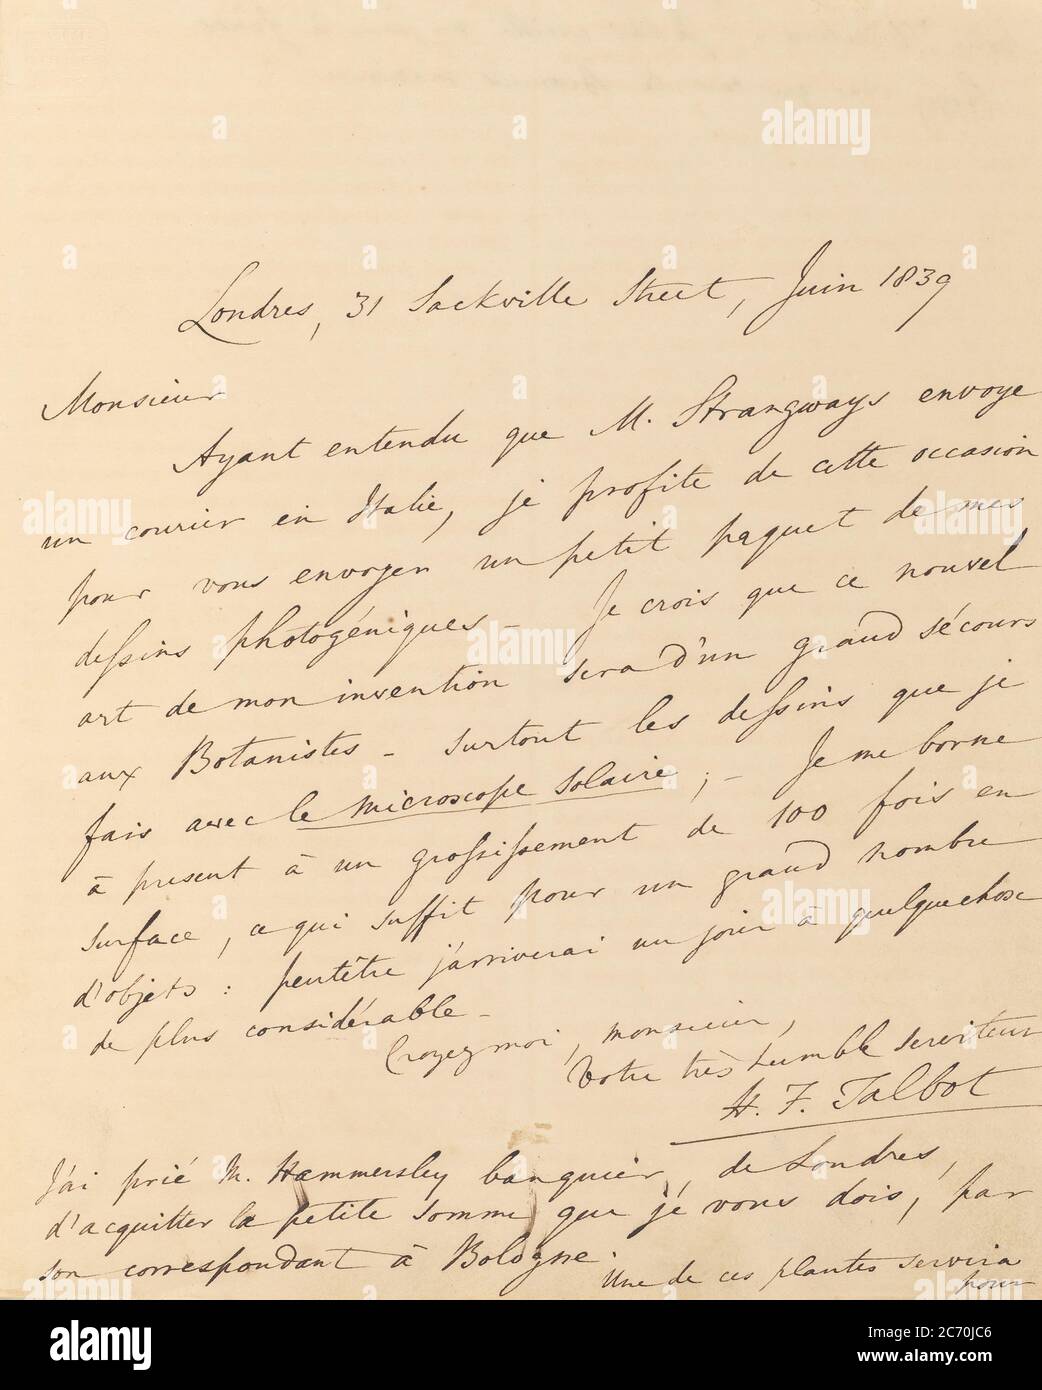 Londres, 31 Sackville Street, Juin 1839
Monsieur
Ayant entendu que M. Strangways envoye
un courier en Italie, je profite de cette occasion
pour vous envoyer un petit paquet de mes
dessins photogéniques – Je crois que ce nouvel
art de mon invention sera d'un grand sécours
aux Botanistes – surtout les dessins que je
fais avec le microscope solaire ; – Je me borne
à present à un grossissement de 100 fois en
surface, ce qui suffit pour un grand nombre
d'objets : peutêtre j'arriverai un jour à quelquechose
de plus considérable –
Croyez moi, monsieur,
Votre très humble serviteur
H. F. Talbot
J'ai prié M. Hammersley banquier, de Londres,
d'acquitter la petite somme que je vous dois, par
son correspondant à Bologne.
Une de ces plantes servira
pour
alamy
Image ID: 2C70JC6
www.alamy.com